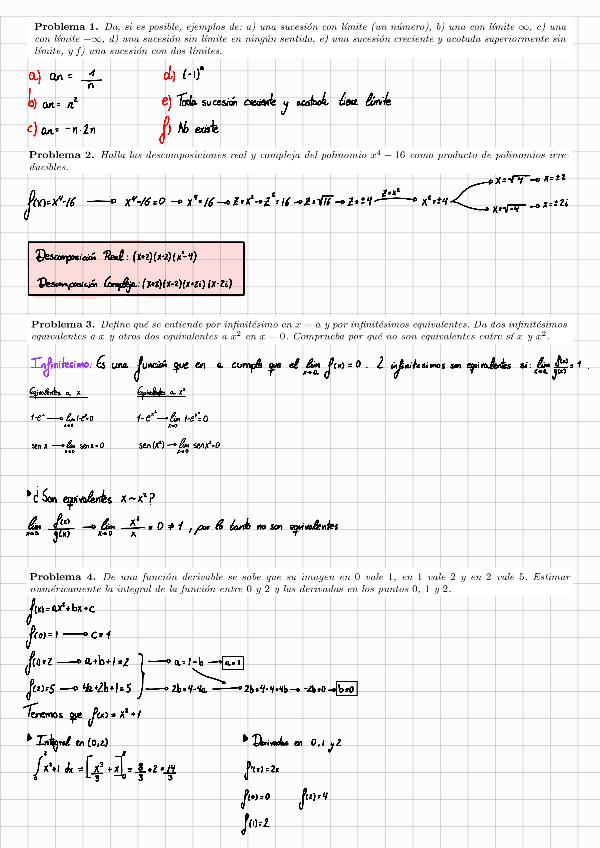 Problema 1. Da, si es posible, ejemplos de: a) una sucesión con límite (un número), b) una con límite ∞, c) una
con límite −∞, d) una sucesión sin límite en ningún sentido, e) una sucesión creciente y acotada superiormente sin
límite, y f) una sucesión con dos límites.
a) an = 1/n
d) (-1)ⁿ
b) an = n²
e) Toda sucesión creciente y acotada tiene límite
c) an = -n·2n
f) No existe
Problema 2. Halla las descomposiciones real y compleja del polinomio x⁴ − 16 como producto de polinomios irre-
ducibles.
f(x)=x⁴-16 → x⁴-16=0 → x⁴=16 → z=x² → z²=16 → z=√16 → z=±4 z=x² → x²=±4
x=√4 → x=±2
x=√-4 → x=±2i
Descomposición Real: (x+2)(x-2)(x²-4)
Descomposición Compleja: (x+2)(x-2)(x+2i)(x-2i)
Problema 3. Define qué se entiende por infinitésimo en x = a y por infinitésimos equivalentes. Da dos infinitésimos
equivalentes a x y otros dos equivalentes a x² en x = 0. Comprueba por qué no son equivalentes entre sí x y x².
Infinitésimo: Es una función que en a cumple que el lim x→a f(x)=0. 2 infinitésimos son equivalentes si: lim x→a f(x)/g(x)=1.
Equivalentes a x
Equivalentes a x²
1-eˣ → lim x→0 1-eˣ=0
1-eˣ² → lim x→0 1-eˣ²=0
sen x → lim x→0 sen x=0
sen(x²) → lim x→0 sen x²=0
¿Son equivalentes x~x²?
lim x→0 f(x)/g(x) → lim x→0 x²/x = 0 ≠ 1, por lo tanto no son equivalentes
Problema 4. De una función derivable se sabe que su imagen en 0 vale 1, en 1 vale 2 y en 2 vale 5. Estimar
numéricamente la integral de la función entre 0 y 2 y las derivadas en los puntos 0, 1 y 2.
f(x)=ax²+bx+c
f(0)=1 → c=1
f(1)=2 → a+b+1=2 → a=1-b → a=1
f(2)=5 → 4a+2b+1=5 → 2b=4-4a → 2b=4-4+4b → -2b=0 → b=0
Tenemos que f(x)=x²+1
Integral en (0,2)
Derivadas en 0,1 y 2
∫₀² x²+1 dx = [x³/3 + x]₀² = 8/3 + 2 = 14/3
f'(x)=2x
f(0)=0
f(2)=4
f(1)=2